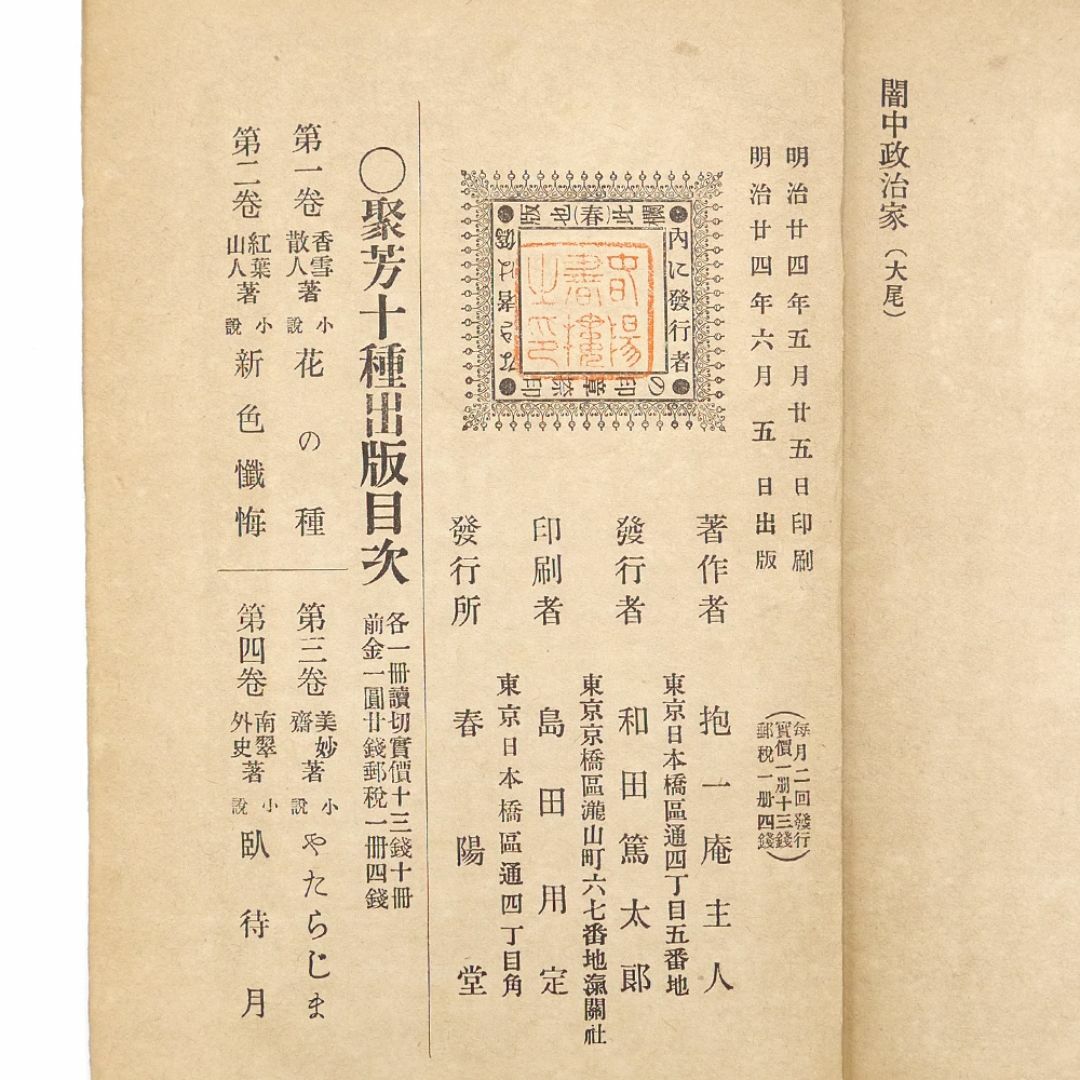 闇中政治家(大尾)
明治廿四年五月廿五日印刷
明治廿四年六月五日出版
(每月二回發行
實價一册十三錢
郵税一册四錢)
著作者 抱一庵主人
東京日本橋區通四丁目五番地
發行者 和田篤太郎
東京京橋區瀧山町六七番地瀛關社
印刷者 島田用定
東京日本橋區通四丁目角
發行所 春陽堂
此欄
内に發行者
の印章捺印
なき者は僞
版也
(春)
春陽
書樓
之印
〇聚芳十種出版目次
各一冊讀切實價十三錢十冊
前金一圓廿錢郵税一冊四錢
第一卷 香雪散人著 小説 花の種
第二卷 紅葉山人著 小説 新色懺悔
第三卷 美妙齋著 小説 やたらじま
第四卷 南翠外史著 小説 臥待月